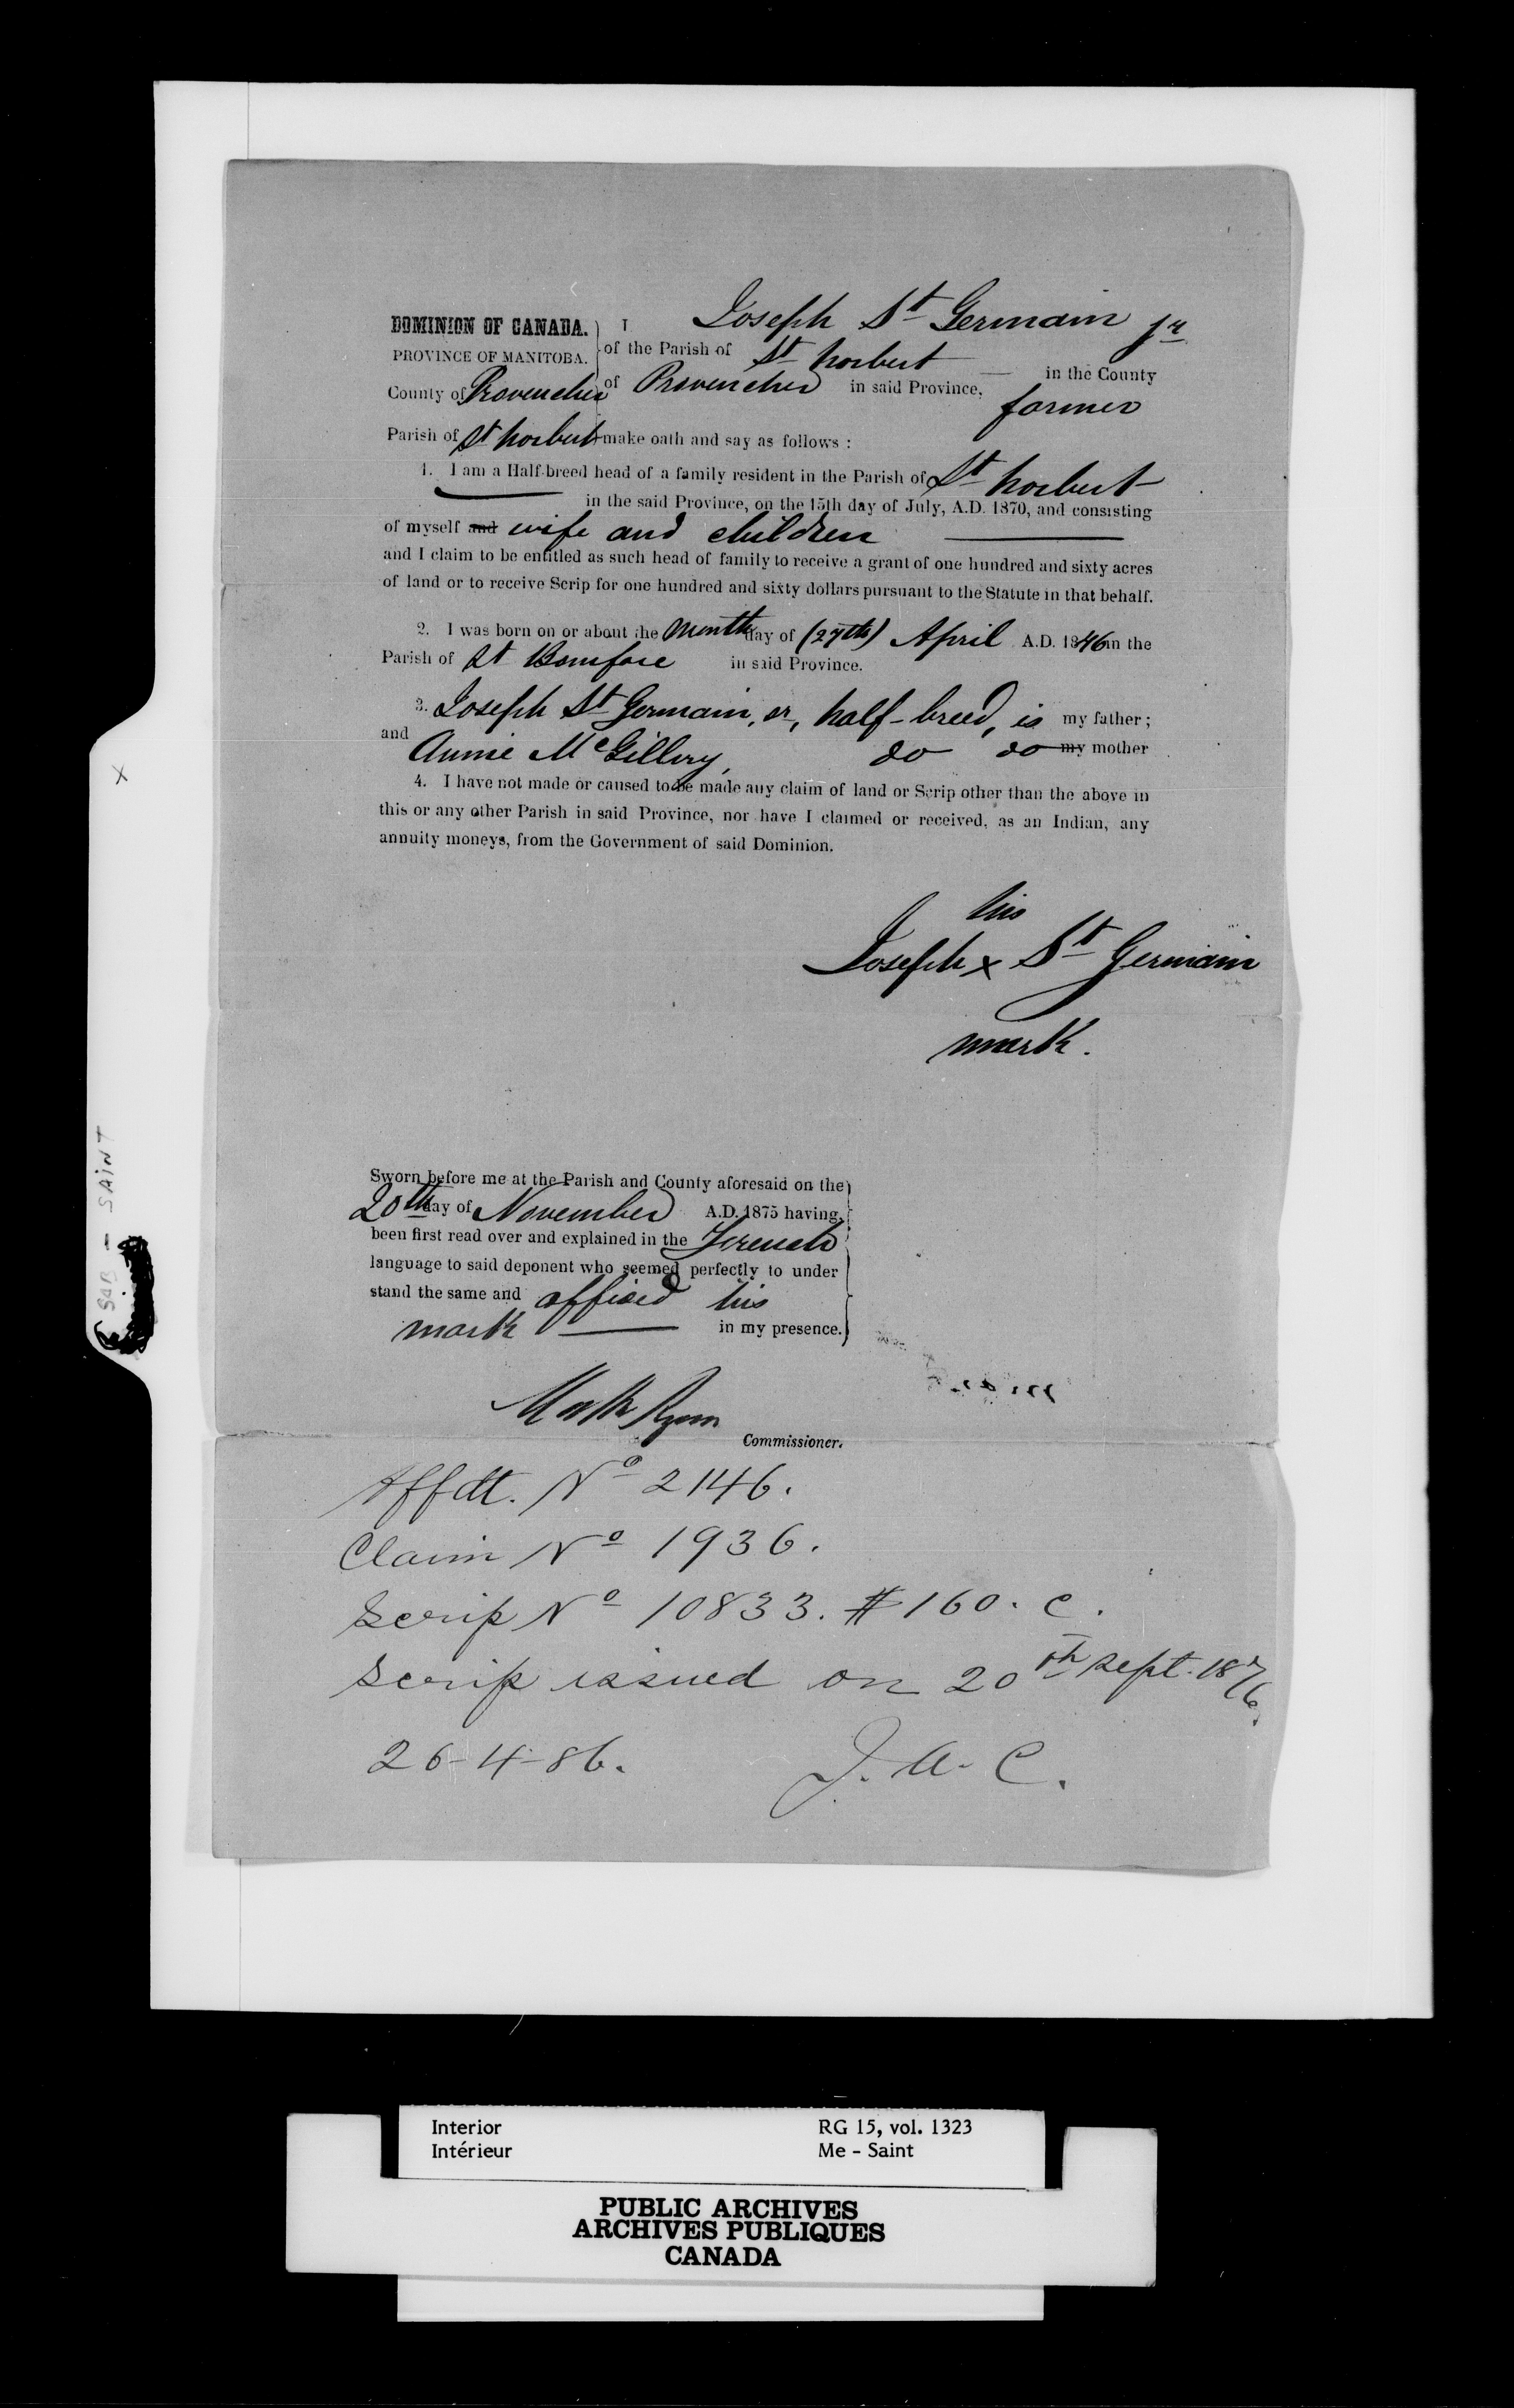 DOMINION OF CANADA.
PROVINCE OF MANITOBA.
County of Provencher
Parish of St Norbert
I Joseph St Germain jr
of the Parish of St Norbert — in the County
of Provencher in said Province, farmer
make oath and say as follows :
1. I am a Half-breed head of a family resident in the Parish of St Norbert
in the said Province, on the 15th day of July, A.D. 1870, and consisting
of myself and wife and children
and I claim to be entitled as such head of family to receive a grant of one hundred and sixty acres
of land or to receive Scrip for one hundred and sixty dollars pursuant to the Statute in that behalf.
2. I was born on or about the Month day of (27th) April A.D. 1846 in the
Parish of St Boniface in said Province.
3. Joseph St Germain, sr, half-breed, is my father;
and Annie McGillvry, do do my mother
4. I have not made or caused to be made any claim of land or Scrip other than the above in
this or any other Parish in said Province, nor have I claimed or received, as an Indian, any
annuity moneys, from the Government of said Dominion.
his
Joseph x St Germain
mark.
Sworn before me at the Parish and County aforesaid on the
20th day of November A.D. 1875 having
been first read over and explained in the French
language to said deponent who seemed perfectly to under
stand the same and affixed his
mark — in my presence.
Commissioner.
Affdt. No 2146.
Claim No 1936.
Scrip No 10833. $160. C.
Scrip issued on 20th Sept. 1876.
26-4-86. J. A. C.
X
SAB - SAINT
Interior
Intérieur
RG 15, vol. 1323
Me - Saint
PUBLIC ARCHIVES
ARCHIVES PUBLIQUES
CANADA